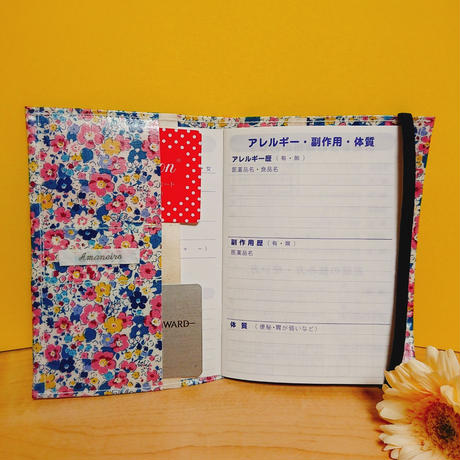 Amanoiro
on
ート
女
WARD
アレルギー・副作用・体質
アレルギー歴（有・無）
医薬品名・食品名
副作用歴（有・無）
医薬品名
体質（便秘・胃が弱いなど）